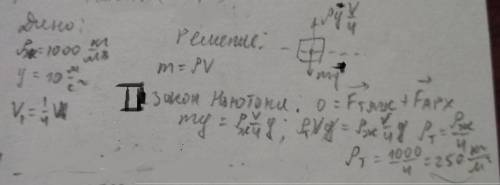 Дано:
ρж=1000 кг/м³
g = 10 м/с²
V₁=1/4 V
Решение:
m = ρV
ρg V/4
mg
II Закон Ньютона. 0 = Fтяж + FАРХ
mg = ρж V/4 g ; ρтVg = ρж V/4 g ρт = ρж/4
ρт = 1000/4 = 250 кг/м³